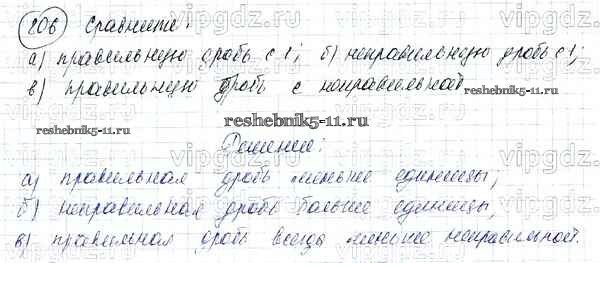 206 Сравните:
а) правильную дробь с 1; б) неправильную дробь с 1;
в) правильную дробь с неправильной
reshebnik5-11.ru reshebnik5-11.ru
reshebnik5-11.ru
Решение:
а) правильная дробь меньше единицы;
б) неправильная дробь больше единицы,
в) правильная дробь всегда меньше неправильной.
vipgdz.com